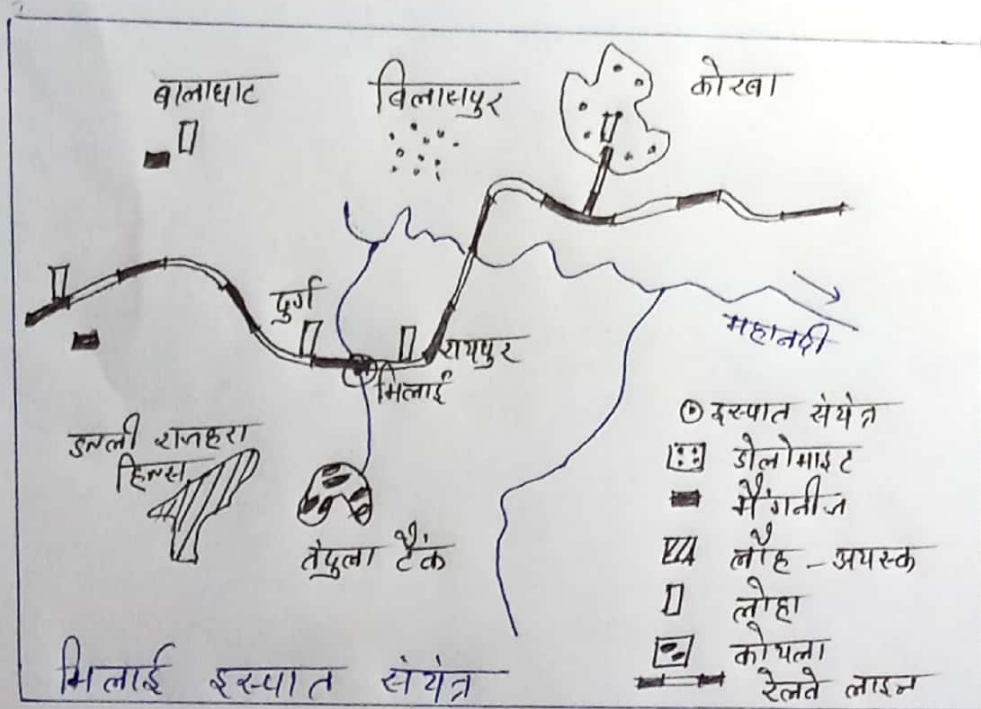 बालाघाट
बिलासपुर
कोरबा
दुर्ग
रायपुर
भिलाई
महानदी
डल्ली राजहरा
हिल्स
तंदुला टैंक
इस्पात संयंत्र
डोलोमाइट
मैंगनीज
लौह - अयस्क
लोहा
कोयला
रेलवे लाइन
भिलाई इस्पात संयंत्र